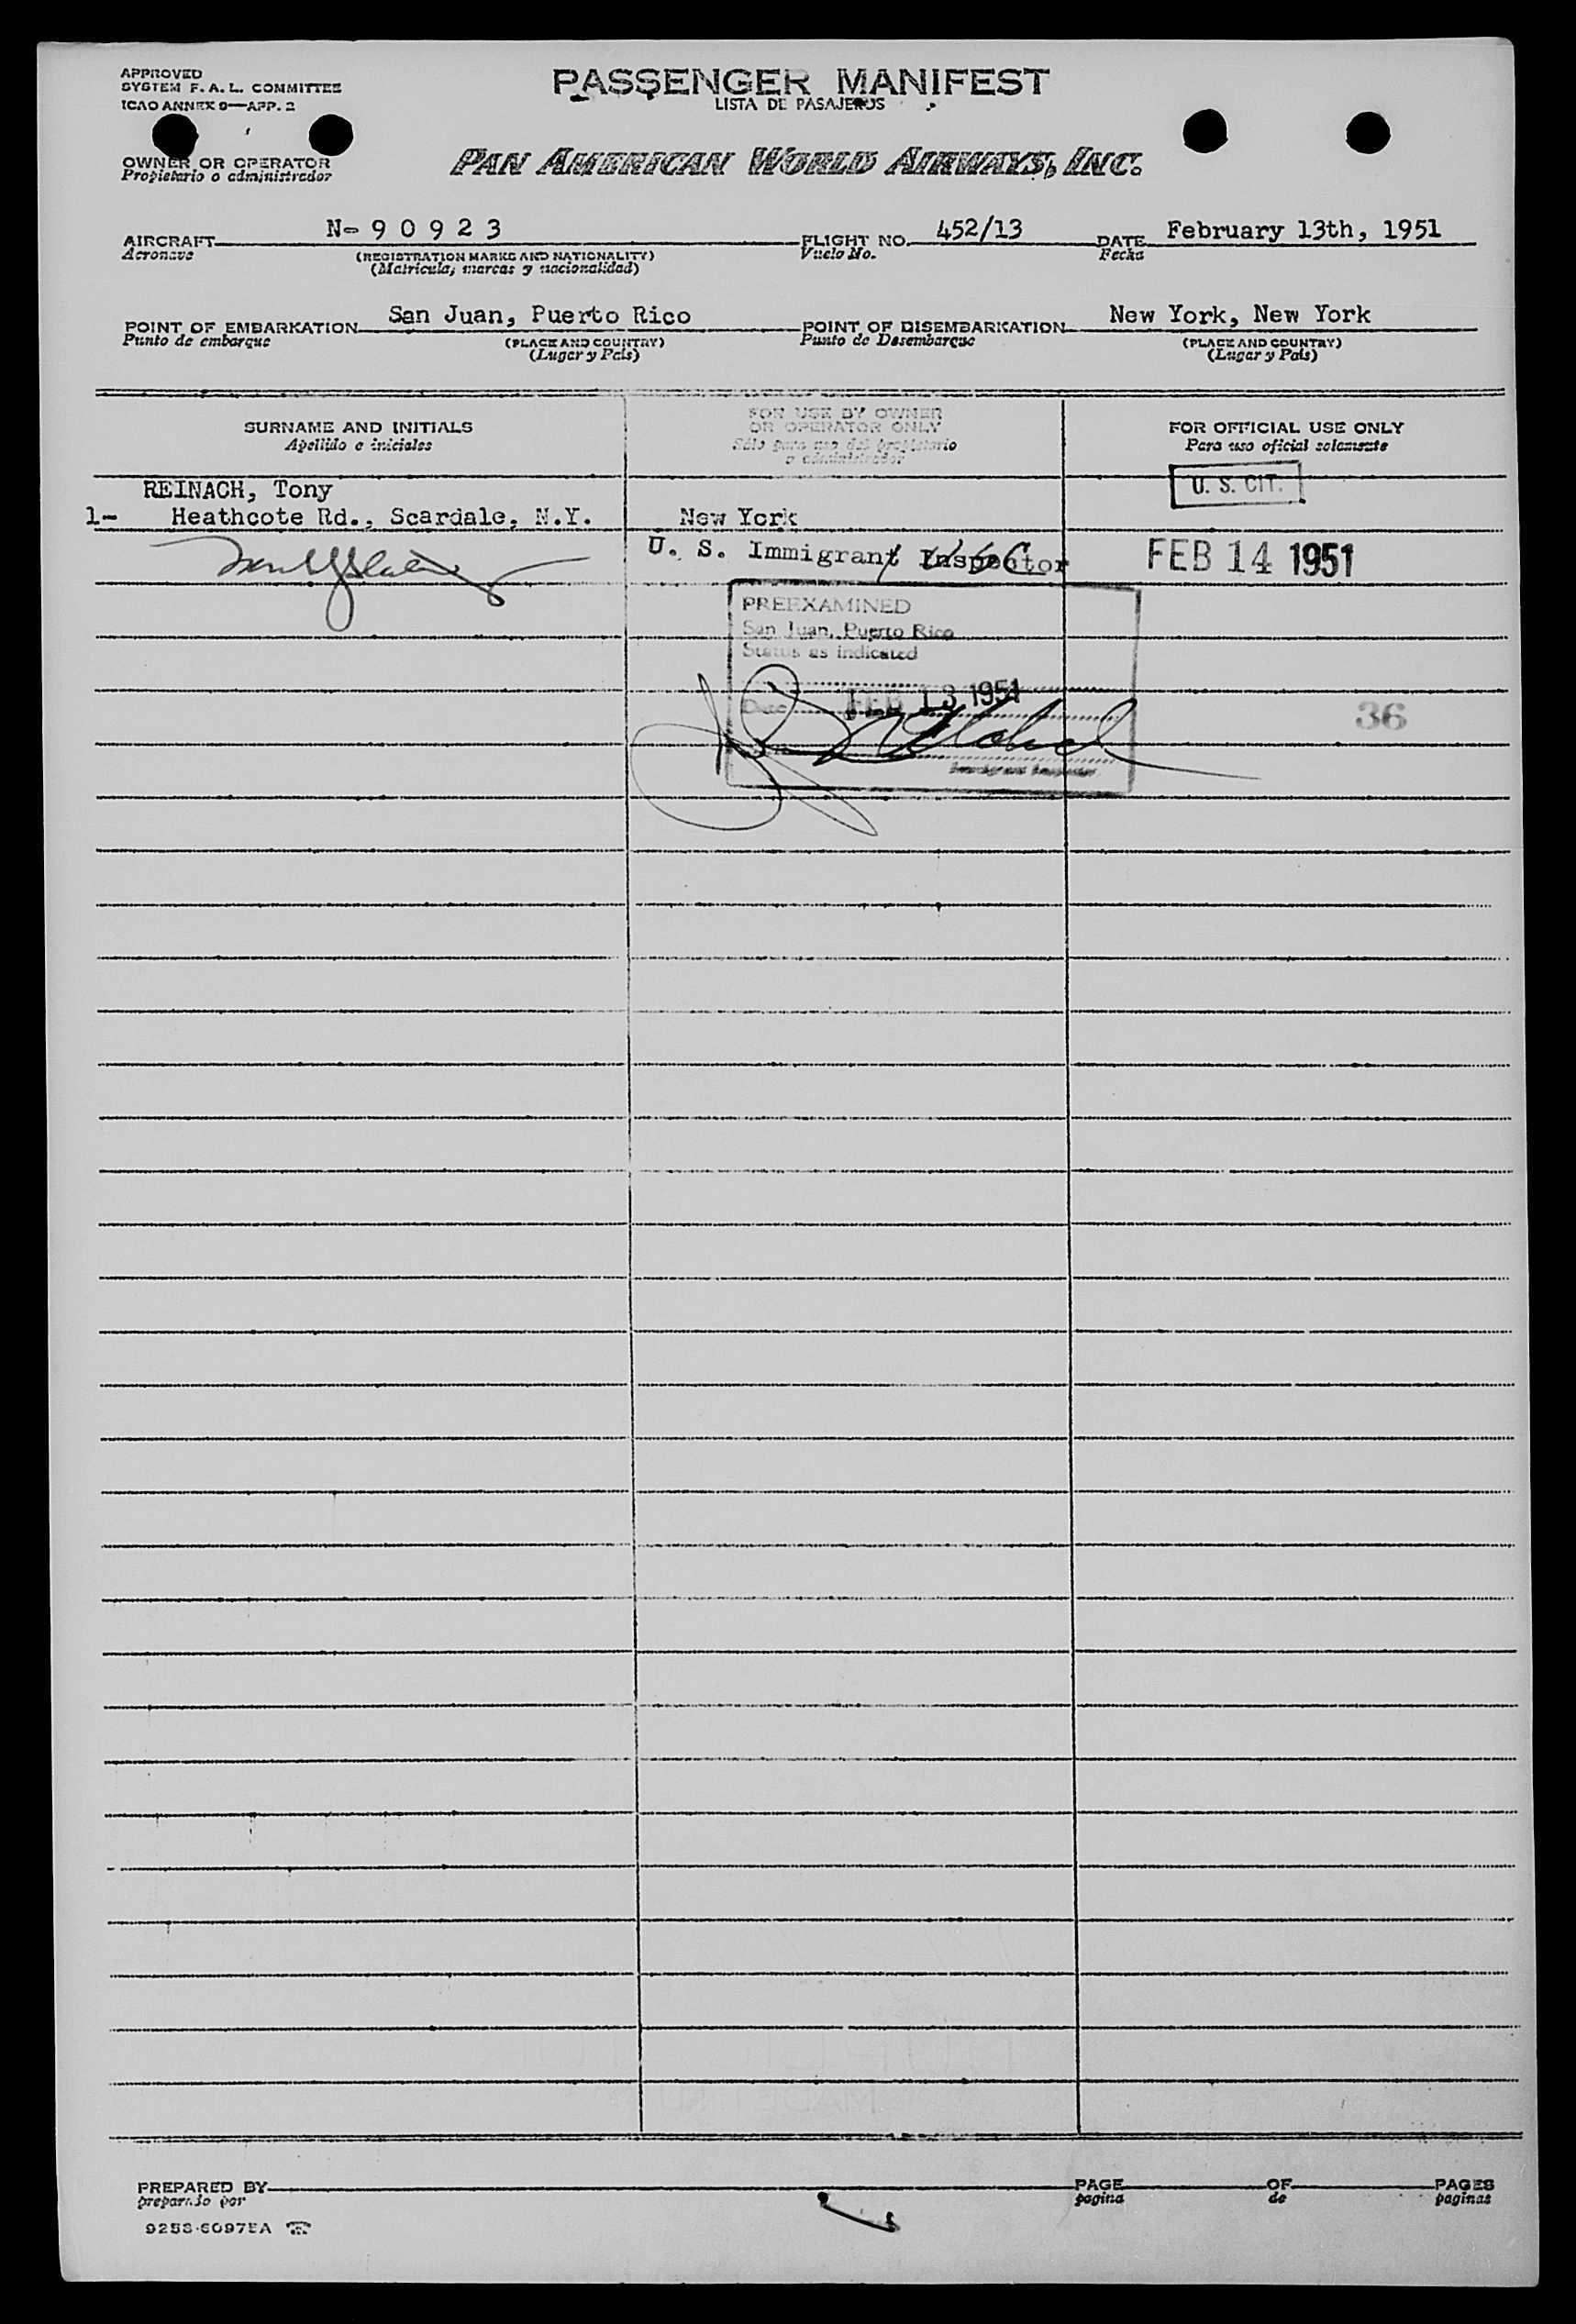 APPROVED
SYSTEM F. A. L. COMMITTEE
ICAO ANNEX 9—APP. 2
PASSENGER MANIFEST
LISTA DE PASAJEROS
OWNER OR OPERATOR
Propietario o administrador
PAN AMERICAN WORLD AIRWAYS, INC.
AIRCRAFT N-90923 FLIGHT NO. 452/13 DATE February 13th, 1951
Aeronave (REGISTRATION MARKS AND NATIONALITY) Vuelo No. Fecha
(Matricula, marcas y nacionalidad)
POINT OF EMBARKATION San Juan, Puerto Rico POINT OF DISEMBARKATION New York, New York
Punto de embarque (PLACE AND COUNTRY) Punto de Desembarque (PLACE AND COUNTRY)
(Lugar y País) (Lugar y País)
SURNAME AND INITIALS
Apellido e iniciales
FOR USE BY OWNER
OR OPERATOR ONLY
Sólo para uso del propietario
o administrador
FOR OFFICIAL USE ONLY
Para uso oficial solamente
REINACH, Tony U. S. CIT.
1- Heathcote Rd., Scardale, N.Y. New York
U. S. Immigrant Inspector FEB 14 1951
PREEXAMINED
San Juan, Puerto Rico
Status as indicated
Date FEB 13 1951
36
Immigrant Inspector
PREPARED BY PAGE OF PAGES
preparado por pagina de paginas